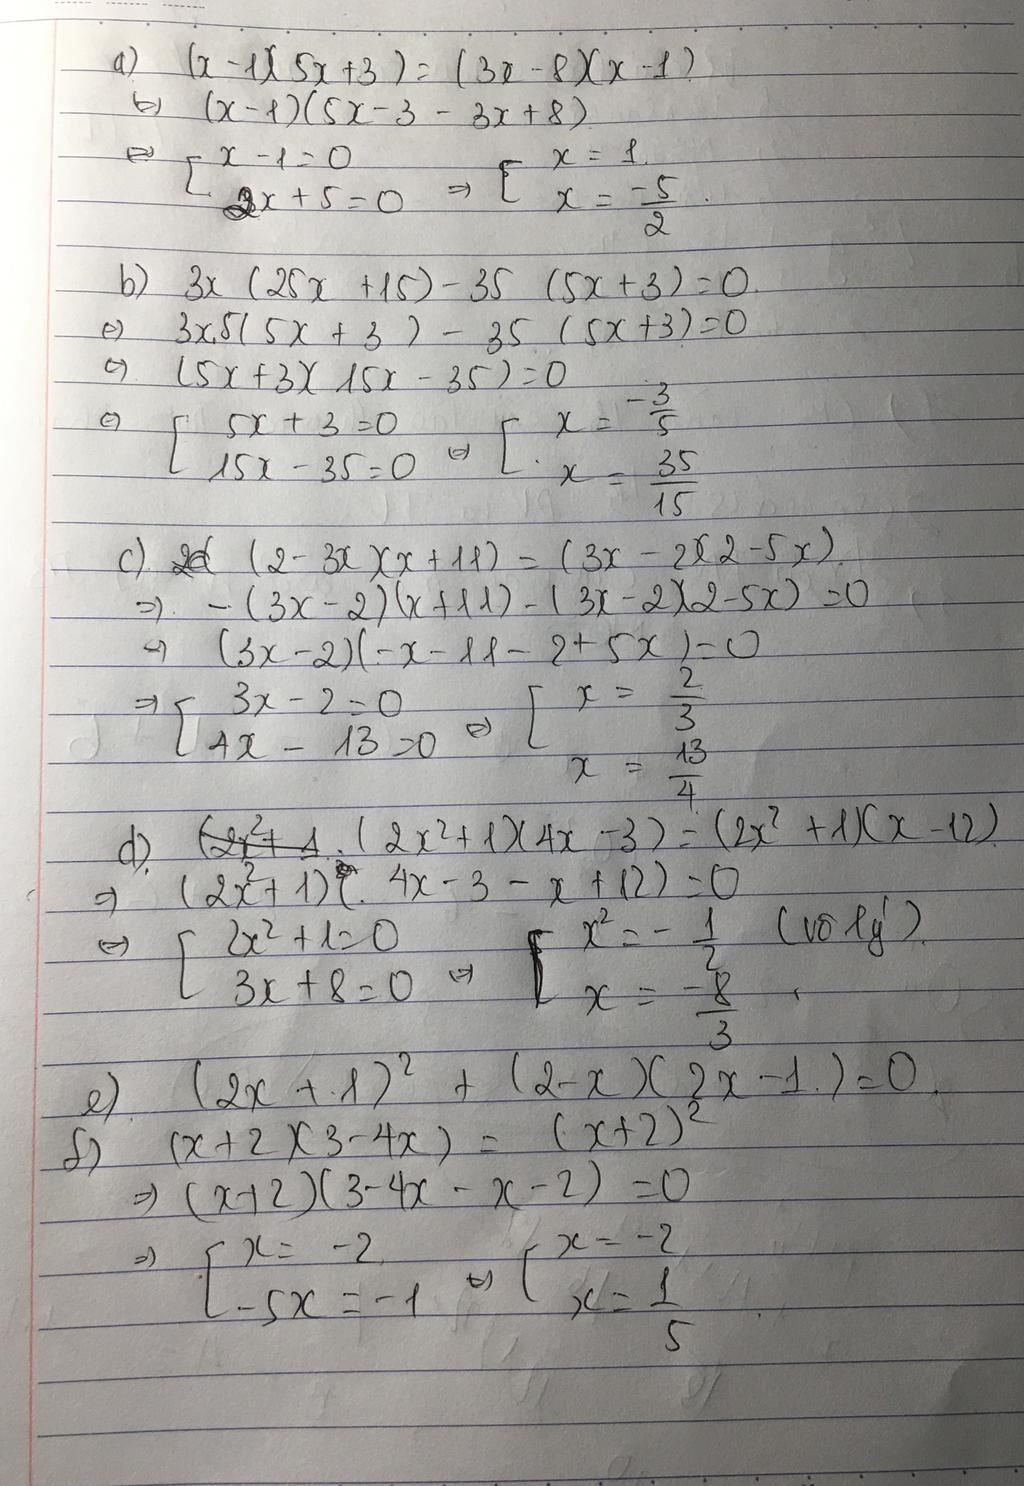 a) (x - 1)(5x + 3) = (3x - 8)(x - 1)
⇔ (x - 1)(5x - 3 - 3x + 8)
⇔ [ x - 1 = 0 ⇒ [ x = 1.
2x + 5 = 0 x = -5/2.
b) 3x (25x + 15) - 35 (5x + 3) = 0.
⇔ 3x.5(5x + 3) - 35 (5x + 3) = 0
⇔ (5x + 3)(15x - 35) = 0
⇔ [ 5x + 3 = 0 ⇔ [ x = -3/5
15x - 35 = 0 x = 35/15
c) (2 - 3x)(x + 11) = (3x - 2)(2 - 5x).
⇒ -(3x - 2)(x + 11) - (3x - 2)(2 - 5x) = 0
⇔ (3x - 2)(-x - 11 - 2 + 5x) = 0
⇒ [ 3x - 2 = 0 ⇔ [ x = 2/3
4x - 13 = 0 x = 13/4
d) (2x² + 1. (2x² + 1)(4x - 3) = (2x² + 1)(x - 12)
⇒ (2x² + 1)(4x - 3 - x + 12) = 0
⇔ [ 2x² + 1 = 0 ⇔ [ x² = -1/2 (vô lý).
3x + 8 = 0 x = -8/3
e) (2x + 1)² + (2 - x)(2x - 1) = 0.
f) (x + 2)(3 - 4x) = (x + 2)²
⇒ (x + 2)(3 - 4x - x - 2) = 0
⇒ [ x = -2 ⇔ [ x = -2
-5x = -1 x = 1/5